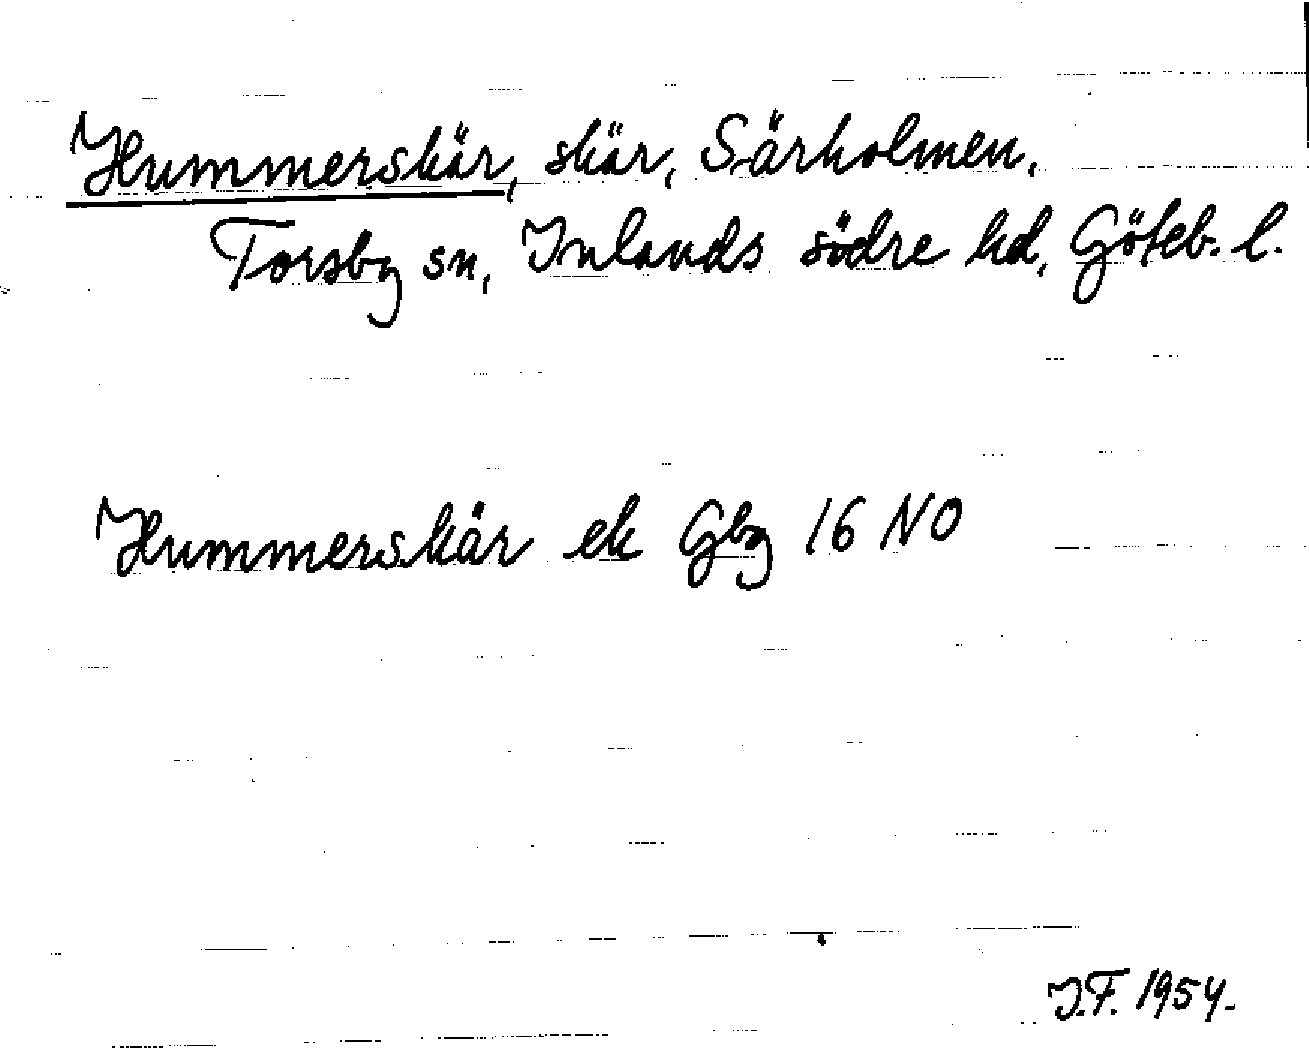 Hummerskär, skär, Särholmen.
Torsby sn, Inlands södre hd, Göteb. l.
Hummerskär ek Gbg 16 NO
J.F. 1954.